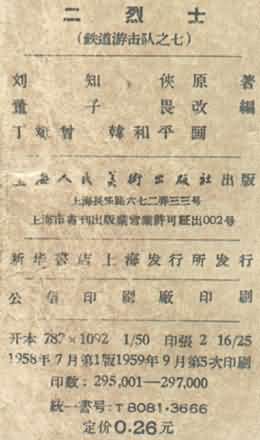 二烈士
(鉄道游击队之七)
刘知侠原著
董子畏改編
丁斌曾 韓和平圖
上海人民美術出版社出版
上海長乐路六七二弄三三号
上海市書刊出版業营業許可証出002号
新华書店上海发行所发行
公信印刷廠印刷
开本 787×1092 1/50 印張 2 16/25
1958年7月第1版1959年9月第5次印刷
印数: 295,001—297,000
統一書号: T 8081·3666
定价 0.26元